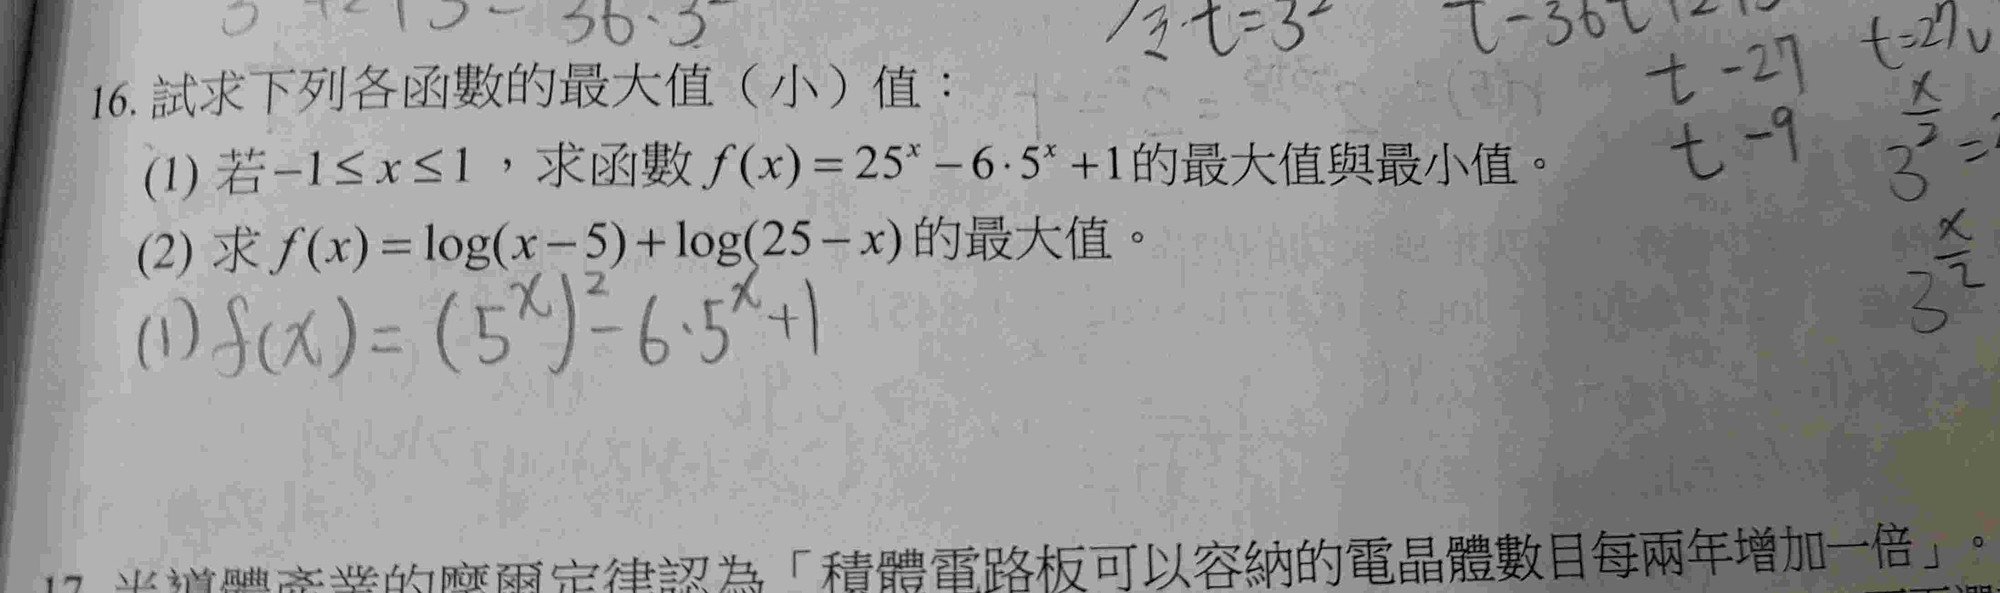 36·3
令t=3
t-36t
t=27
t-27
t-9
16. 試求下列各函數的最大值（小）值：
(1) 若-1≤x≤1，求函數f(x)=25ˣ-6·5ˣ+1的最大值與最小值。
(2) 求f(x)=log(x-5)+log(25-x)的最大值。
(1) f(x)=(5ˣ)²-6·5ˣ+1
3^(x/2)=
3^(x/2)
17. 半導體產業的摩爾定律認為「積體電路板可以容納的電晶體數目每兩年增加一倍」。